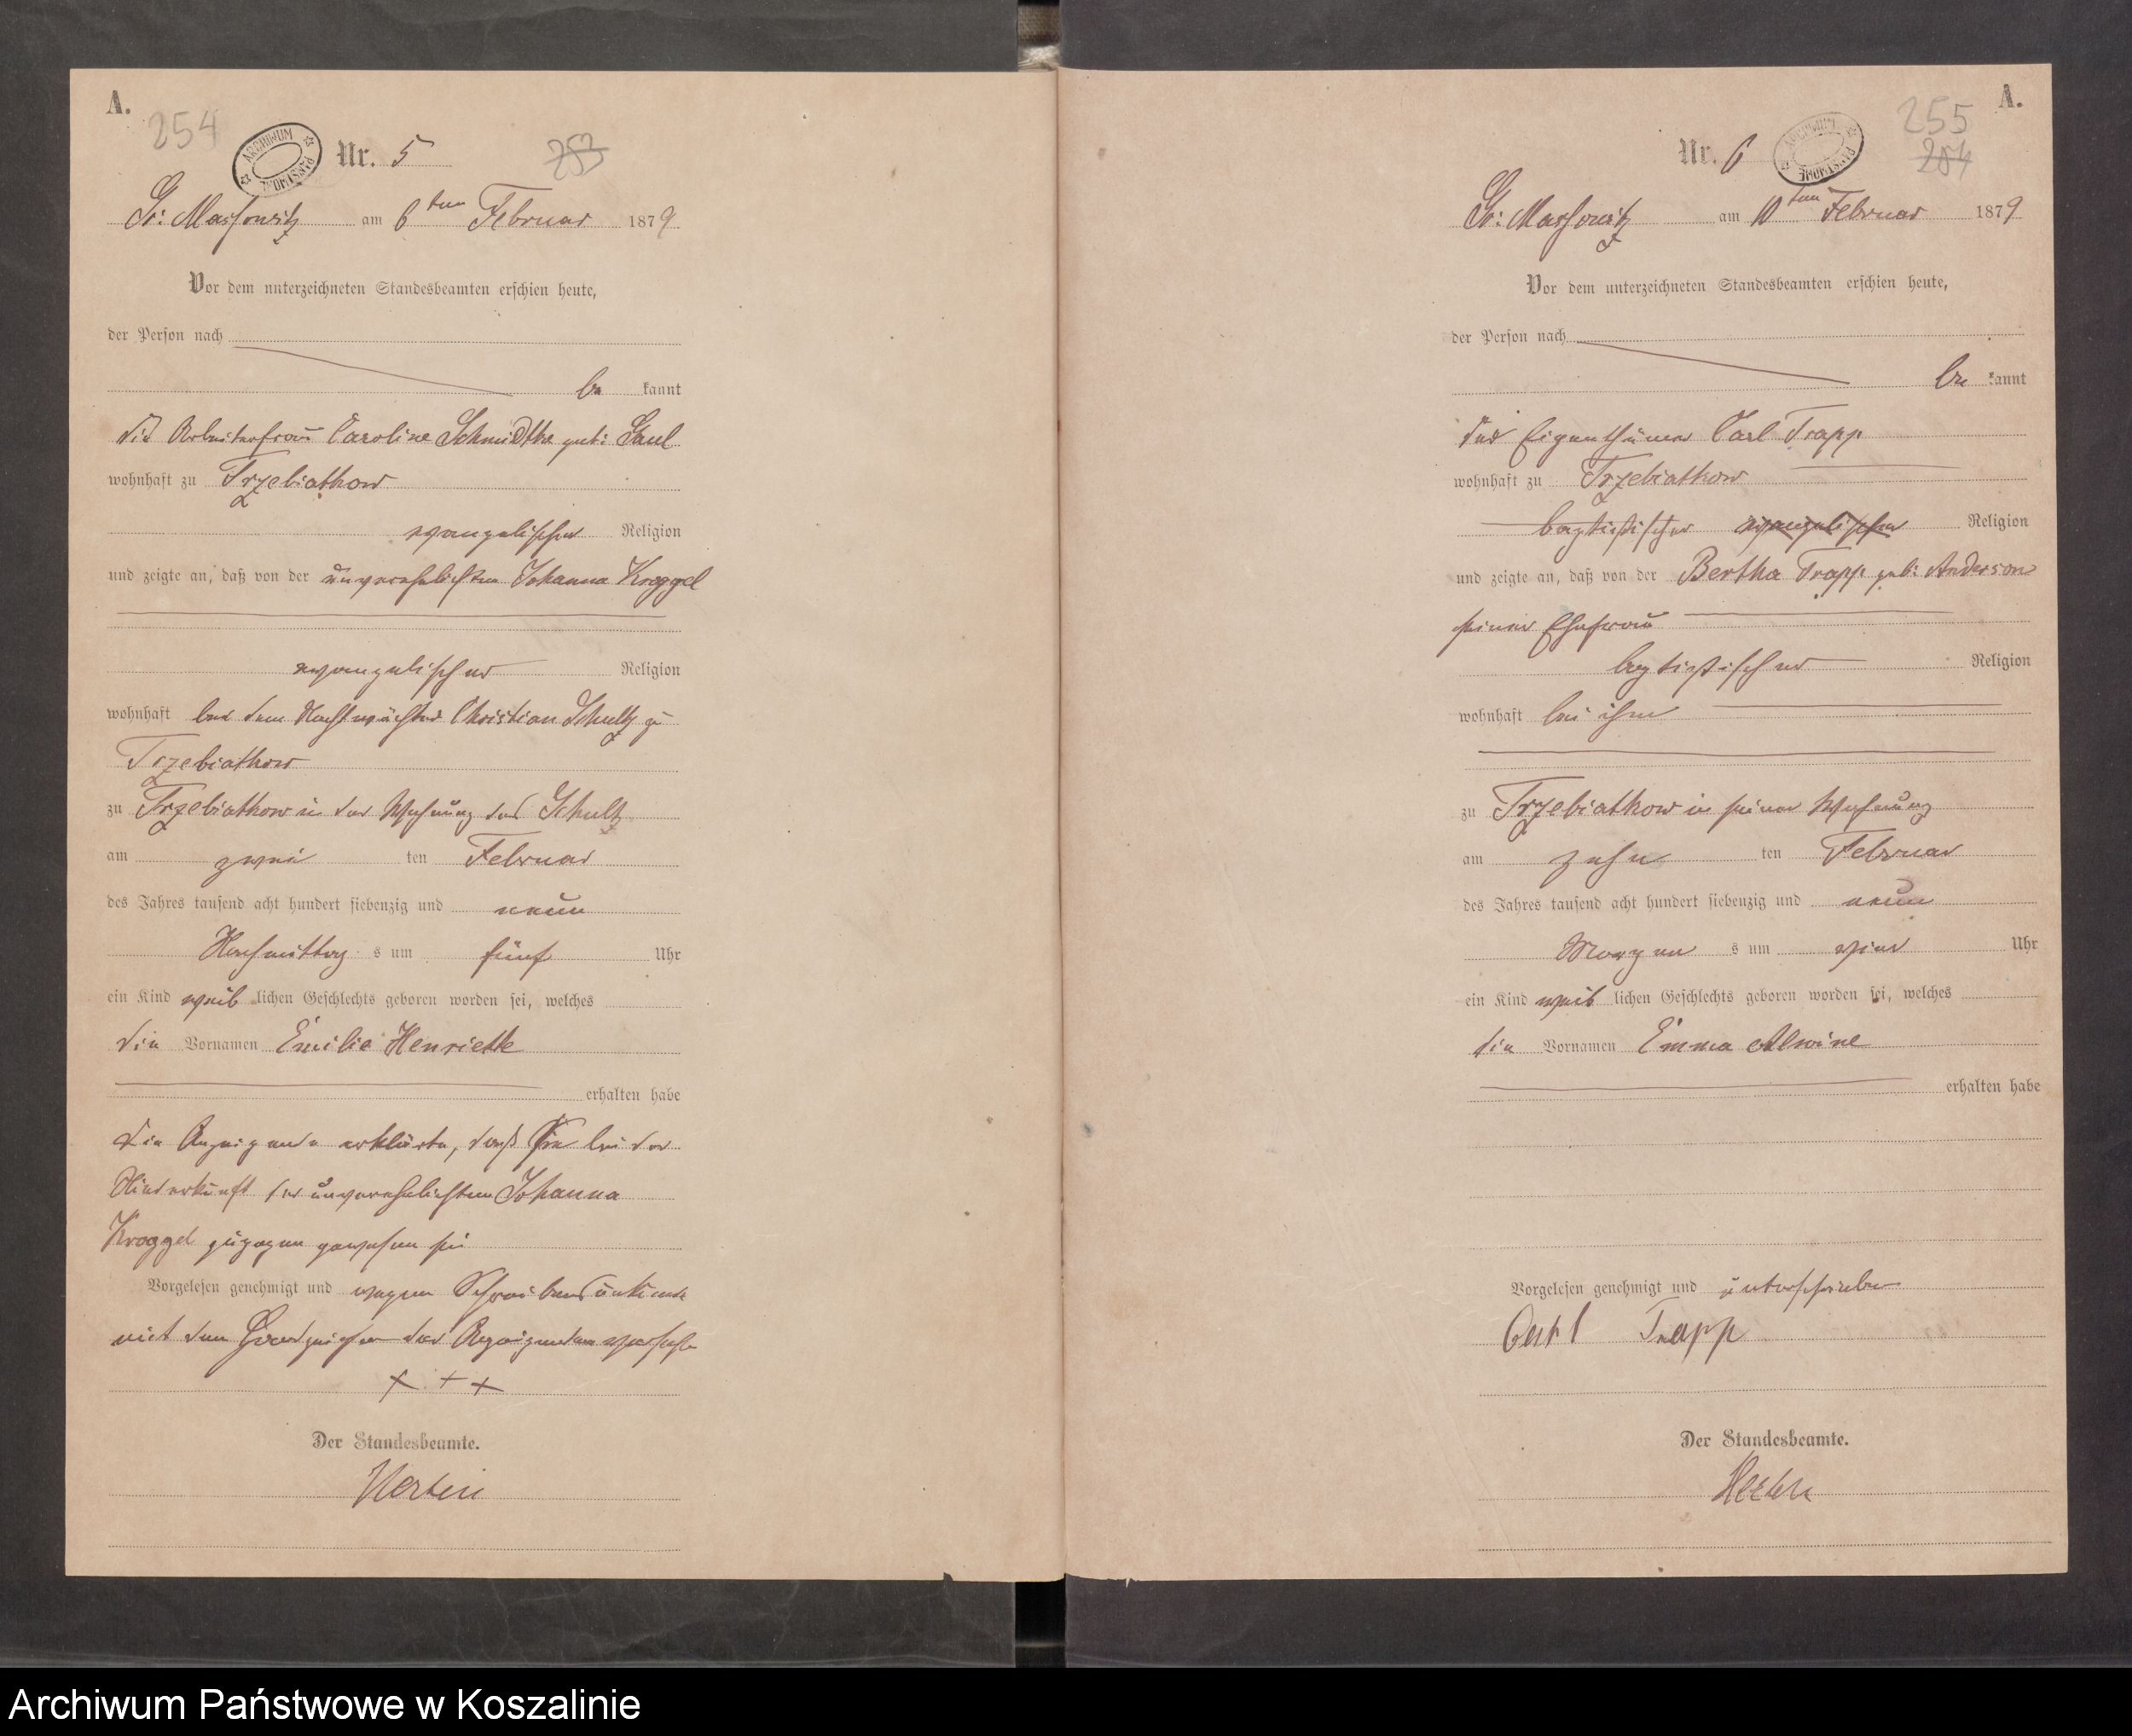 A.
254
ARCHIWUM PAŃSTWOWE
Nr. 5
253
Gr: Massowitz am 6ten Februar 1879
Vor dem unterzeichneten Standesbeamten erschien heute,
der Person nach
be kannt
die Arbeiterfrau Caroline Schmidtke geb: Gaul
wohnhaft zu Trzebiatkow
evangelischer Religion
und zeigte an, daß von der unverehelichten Johanna Kroggel
evangelischer Religion
wohnhaft bei dem Nachtwächter Christian Schultz zu
Trzebiatkow
zu Trzebiatkow in der Wohnung des Schultz
am zwei ten Februar
des Jahres tausend acht hundert siebenzig und neun
Nachmittag s um fünf Uhr
ein Kind weib lichen Geschlechts geboren worden sei, welches
die Vornamen Emilie Henriette
erhalten habe
die Anzeigende erklärte, daß sie bei der
Niederkunft der unverehelichten Johanna
Kroggel zugegen gewesen sei
Vorgelesen genehmigt und wegen Schreibensunkunde
mit dem Handzeichen der Anzeigenden versehen
+ + +
Der Standesbeamte.
A.
255
ARCHIWUM PAŃSTWOWE
Nr. 6
254
Gr: Massowitz am 10ten Februar 1879
Vor dem unterzeichneten Standesbeamten erschien heute,
der Person nach
be kannt
der Eigenthümer Carl Trapp
wohnhaft zu Trzebiatkow
baptistischer evangelischer Religion
und zeigte an, daß von der Bertha Trapp geb: Anderson
seiner Ehefrau
baptistischer Religion
wohnhaft bei ihm
zu Trzebiatkow in seiner Wohnung
am zehn ten Februar
des Jahres tausend acht hundert siebenzig und neun
Morgen s um vier Uhr
ein Kind weib lichen Geschlechts geboren worden sei, welches
die Vornamen Emma Alwine
erhalten habe
Vorgelesen genehmigt und unterschrieben
Carl Trapp
Der Standesbeamte.
Archiwum Państwowe w Koszalinie